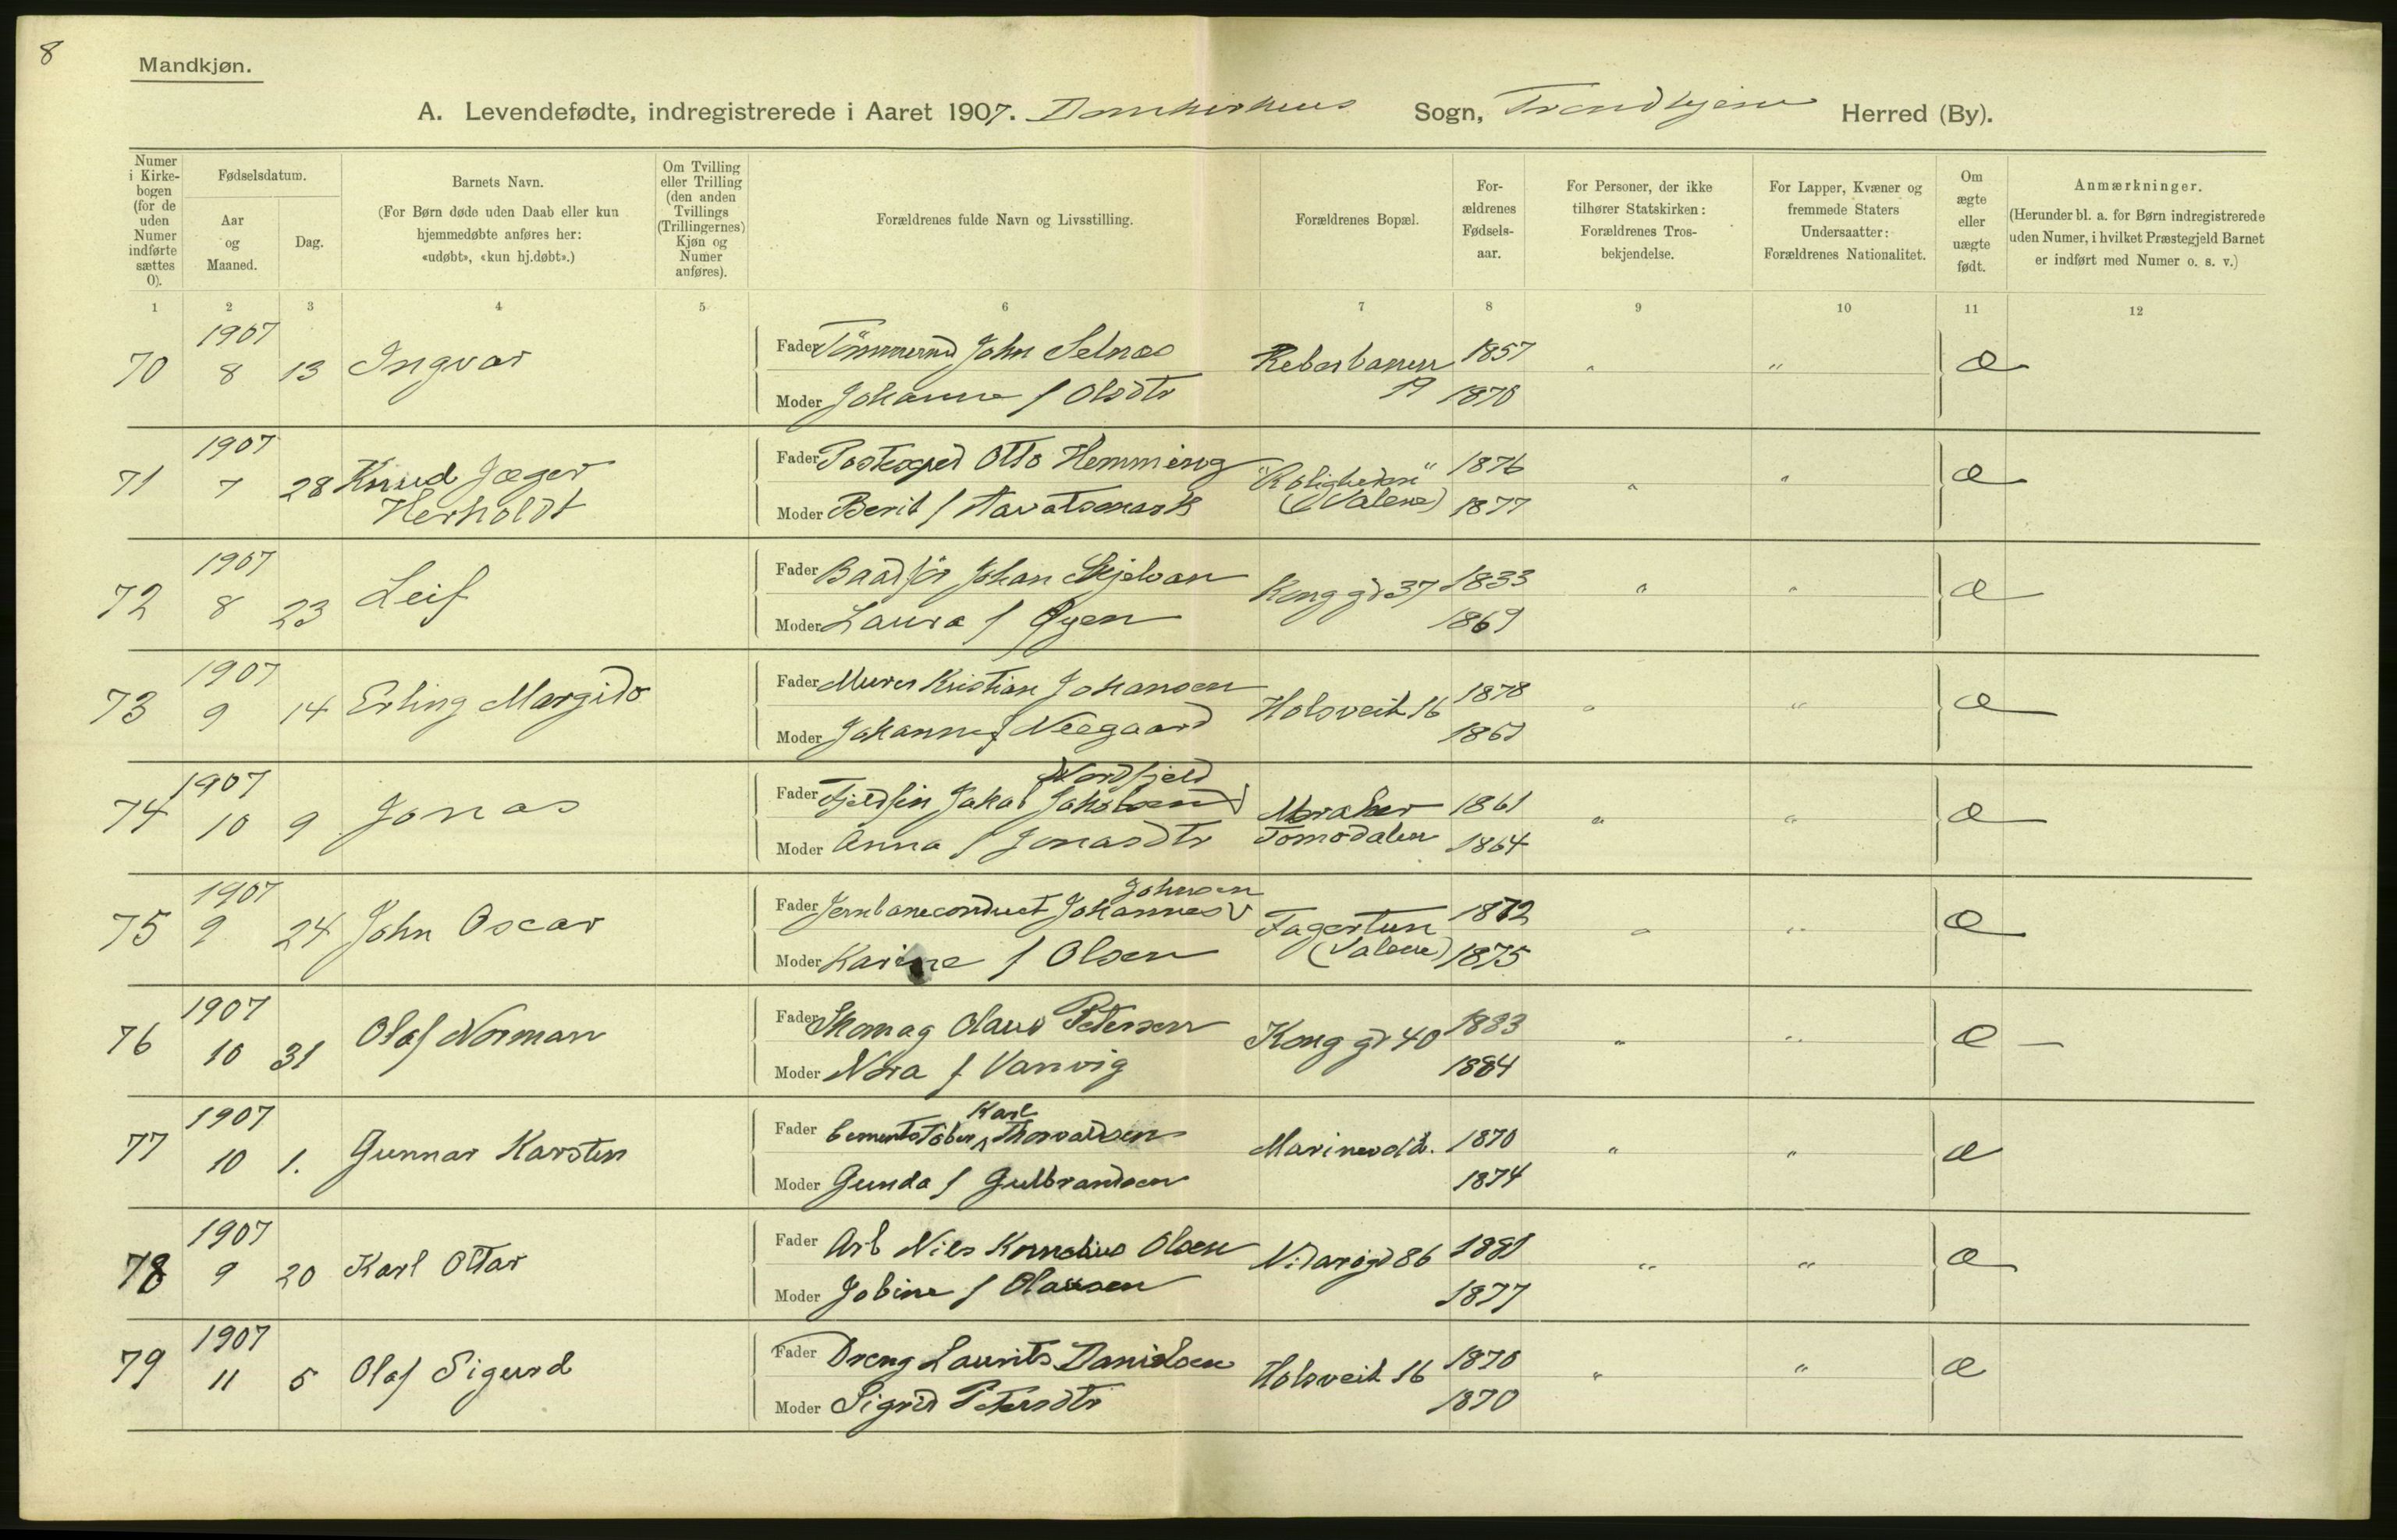 8
Mandkjøn.
A. Levendefødte, indregistrerede i Aaret 1907. Domkirkens Sogn, Trondhjem Herred (By).
Numer i Kirkebogen (for de uden Numer indførte sættes 0).
Fødselsdatum.
Aar og Maaned.
Dag.
Barnets Navn.
(For Børn døde uden Daab eller kun hjemmedøbte anføres her: «udøbt», «kun hj.døbt».)
Om Tvilling eller Trilling (den anden Tvillings (Trillingernes) Kjøn og Numer anføres).
Forældrenes fulde Navn og Livsstilling.
Forældrenes Bopæl.
For-ældrenes Fødsels-aar.
For Personer, der ikke tilhører Statskirken: Forældrenes Tros-bekjendelse.
For Lapper, Kvæner og fremmede Staters Undersaatter: Forældrenes Nationalitet.
Om ægte eller uægte født.
Anmærkninger.
(Herunder bl. a. for Børn indregistrerede uden Numer, i hvilket Præstegjeld Barnet er indført med Numer o. s. v.)
1 2 3 4 5 6 7 8 9 10 11 12
70 1907 8 13 Ingvar
Fader Tömmermd John Selnæs Reberbanen 1857 " " æ
Moder Johanne f Olsdtr 19 1870
71 1907 7 28 Knud Jæger Herholdt
Fader Postexped Otto Hemming "Roligheden" 1876 " " æ
Moder Berit f (Valene) 1877
72 1907 8 23 Leif
Fader Baadför Johan Skjelvan Kong gd 37 1833 " " æ
Moder Laura f Øyen 1869
73 1907 9 14 Erling Margido
Fader Murer Kristian Johansen Holsveit 16 1878 " " æ
Moder Johanne f Neegaard
74 1907 10 9 Jonas
Nordfjeld
Fader Jakob Jakobsen 1861 " " æ
Moder Anna f Jonasdtr 1864
75 1907 9 24 John Oscar
Johnsen
Fader Jernbaneconduct Johannes Fagertun 1872 " " æ
Moder Karine f Olsen (Valene) 1875
76 1907 10 31 Olaf Norman
Fader Skomag Olaus Petersen Kong gd 40 1883 " " æ
Moder Nora f Vanvig 1884
77 1907 10 1. Gunnar Karsten
Karl
Fader Cementstöber Thorvaldsen 1870 " " æ
Moder Gunda f Gulbrandsen 1874
78 1907 9 20 Karl Ottar
Fader Arb Nils Kornelius Olsen Vidarsgd 86 1881 " " æ
Moder Jobine f Olaussen 1877
79 1907 11 5 Olaf Sigurd
Fader Dreng Laurits Danielsen Holsveit 16 1870 " " æ
Moder Sigrid Petersdtr 1870